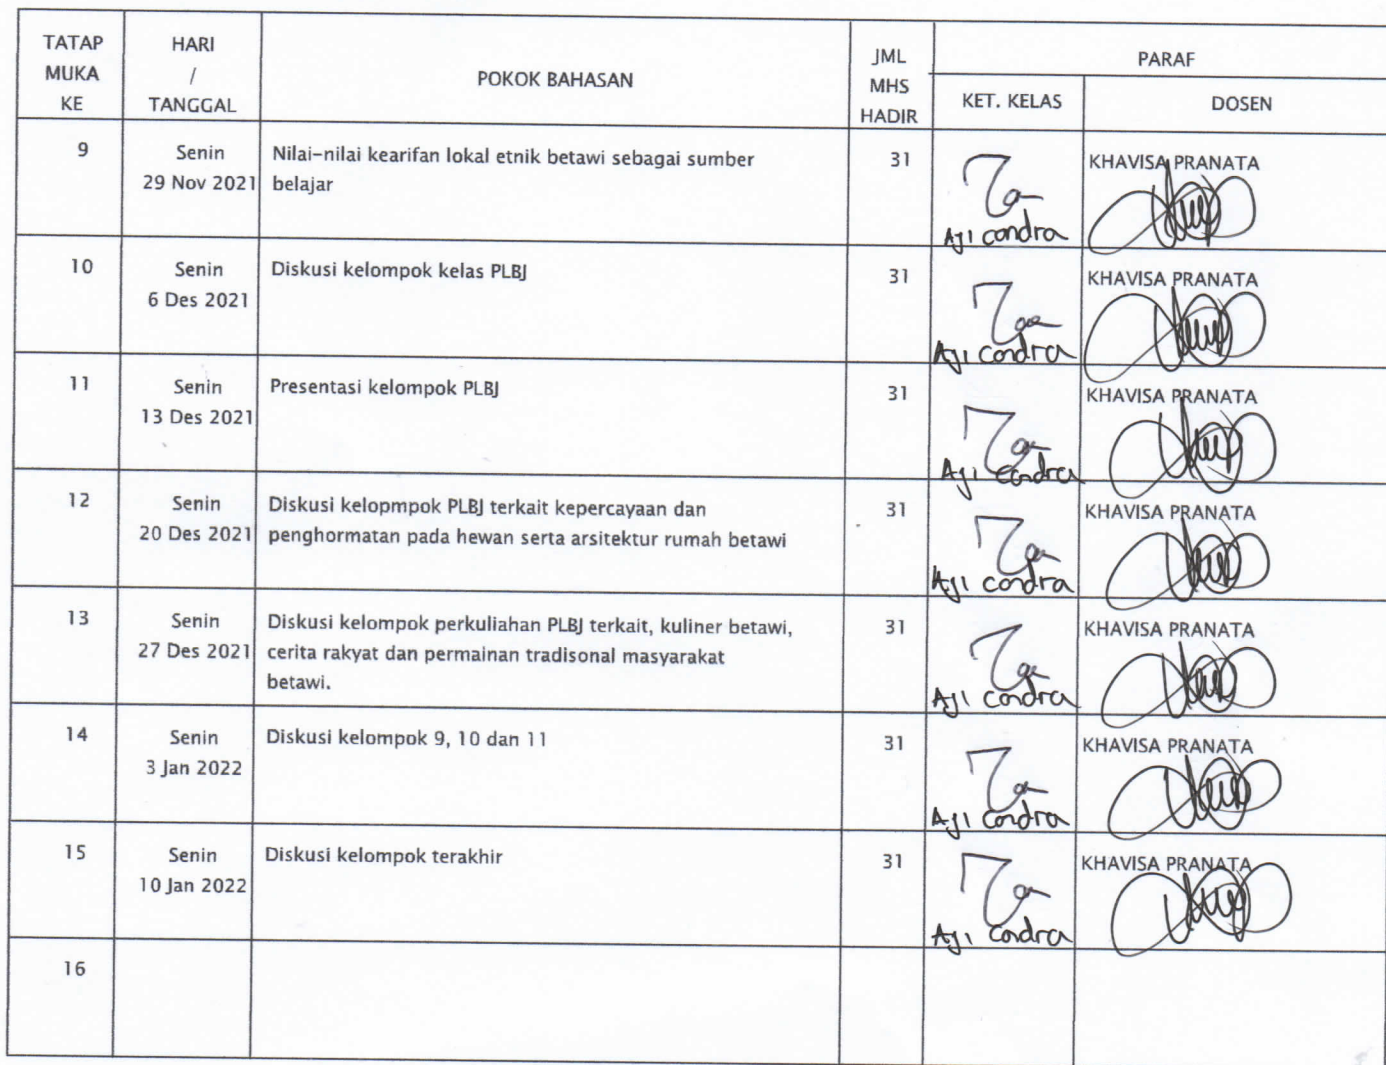 TATAP
MUKA
KE
HARI
/
TANGGAL
POKOK BAHASAN
JML
MHS
HADIR
PARAF
KET. KELAS
DOSEN
9
Senin
29 Nov 2021
Nilai-nilai kearifan lokal etnik betawi sebagai sumber
belajar
31
Aji condra
KHAVISA PRANATA
10
Senin
6 Des 2021
Diskusi kelompok kelas PLBJ
31
Aji condra
KHAVISA PRANATA
11
Senin
13 Des 2021
Presentasi kelompok PLBJ
31
Aji condra
KHAVISA PRANATA
12
Senin
20 Des 2021
Diskusi kelopmpok PLBJ terkait kepercayaan dan
penghormatan pada hewan serta arsitektur rumah betawi
31
Aji condra
KHAVISA PRANATA
13
Senin
27 Des 2021
Diskusi kelompok perkuliahan PLBJ terkait, kuliner betawi,
cerita rakyat dan permainan tradisonal masyarakat
betawi.
31
Aji condra
KHAVISA PRANATA
14
Senin
3 Jan 2022
Diskusi kelompok 9, 10 dan 11
31
Aji condra
KHAVISA PRANATA
15
Senin
10 Jan 2022
Diskusi kelompok terakhir
31
Aji condra
KHAVISA PRANATA
16